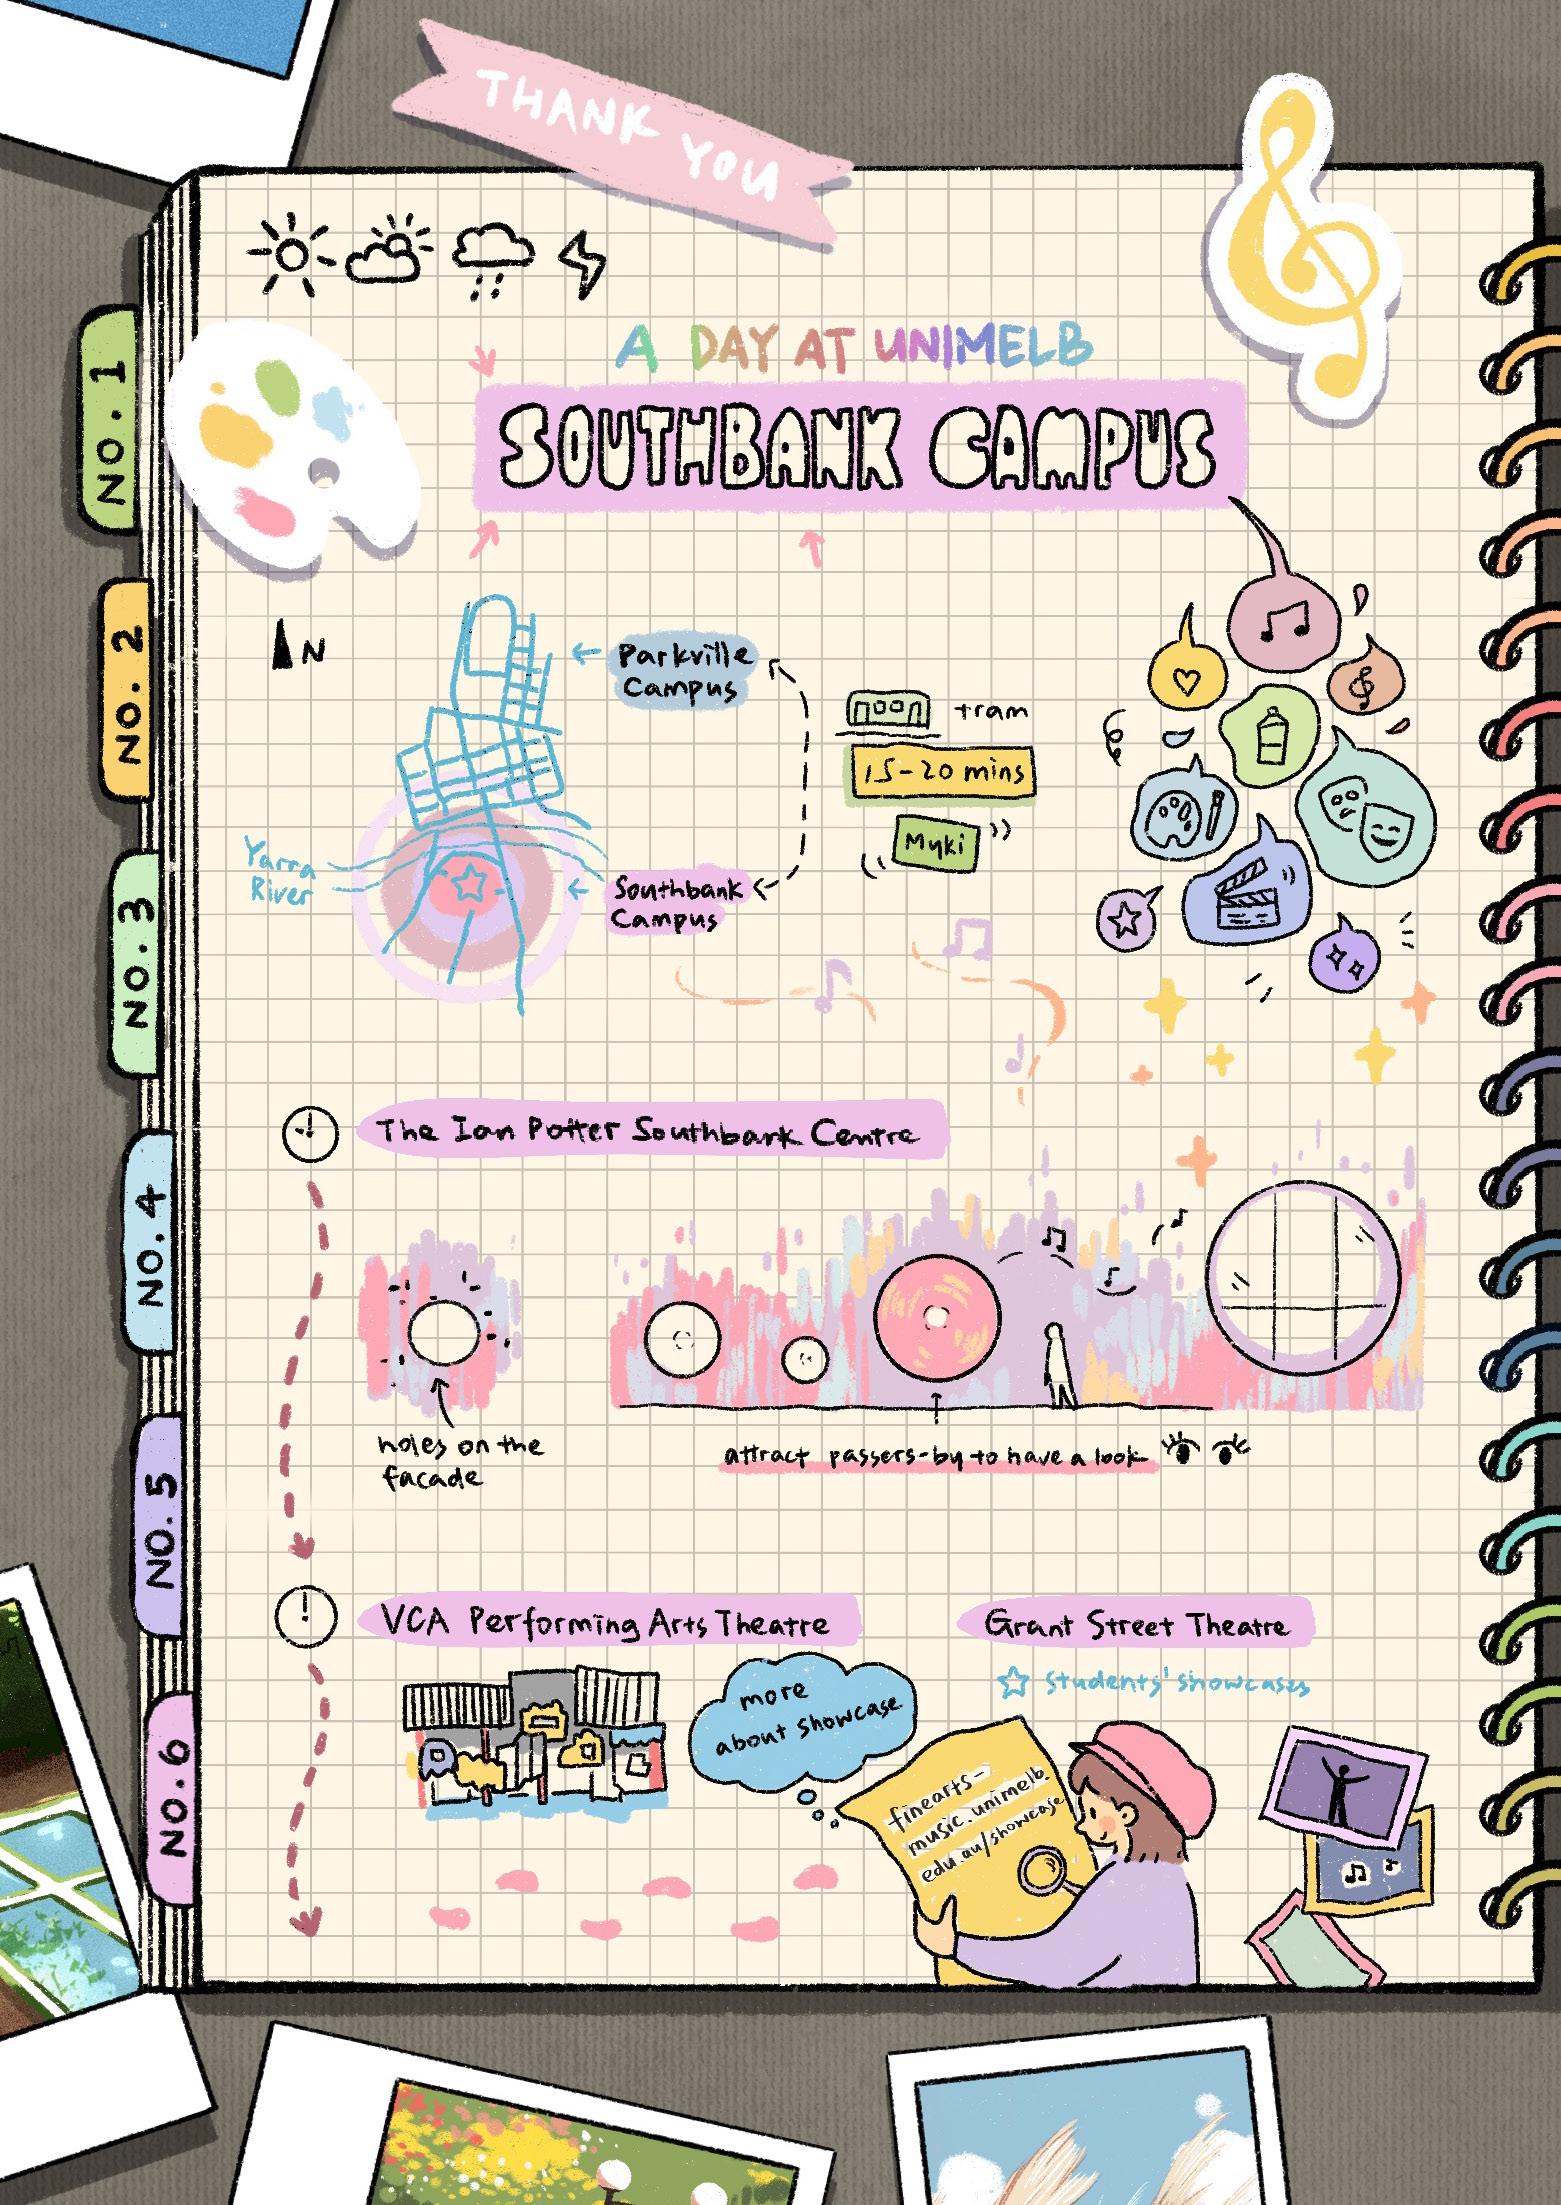 THANK YOU
A DAY AT UNIMELB
SOUTHBANK CAMPUS
NO. 1
NO. 2
NO. 3
NO. 4
NO. 5
NO. 6
N
Parkville
Campus
tram
15-20 mins
Myki
Yarra
River
Southbank
Campus
The Ian Potter Southbank Centre
holes on the
facade
attract passers-by to have a look
VCA Performing Arts Theatre
Grant Street Theatre
Students' showcases
more
about showcase
finearts-
music.unimelb.
edu.au/showcase